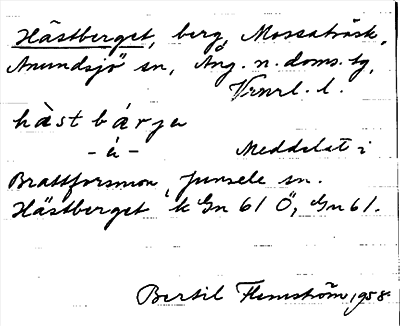 Hästberget, berg, Mossaträsk,
Anundsjö sn, Ång. n. doms. tg,
Vrnrl. l.
hàst bárja
- à -
Meddelat i
Brattforsmon, Junsele sn.
Hästberget k Gn 61 Ö, Gn 61.
Bertil Flemström 1958